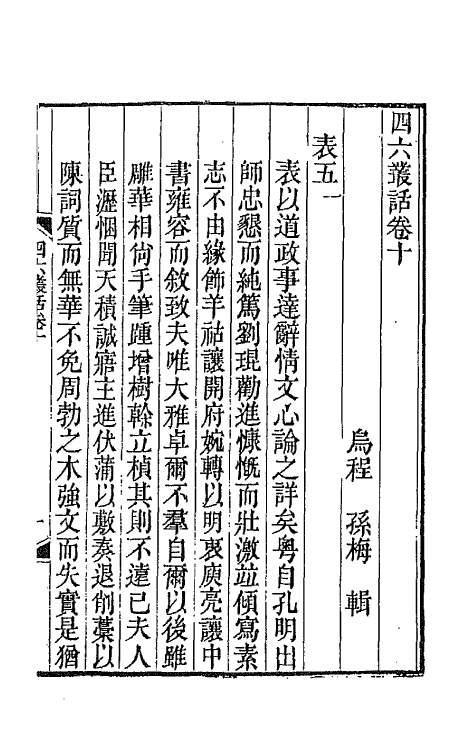 四六叢話卷十
烏程 孫梅 輯
表五一
表以道政事達辭情文心論之詳矣粵自孔明出
師忠懇而純篤劉琨勸進慷慨而壯激並傾寫素
志不由緣飾羊祜讓開府婉轉以明衷庾亮讓中
書雍容而敘致夫唯大雅卓爾不羣自爾以後雖
雕華相尚手筆踵增樹榦立楨其則不遠已夫人
臣瀝悃聞天積誠寤主進伏蒲以敷奏退削藁以
陳詞質而無華不免周勃之木強文而失實是猶
四六叢話卷十
一